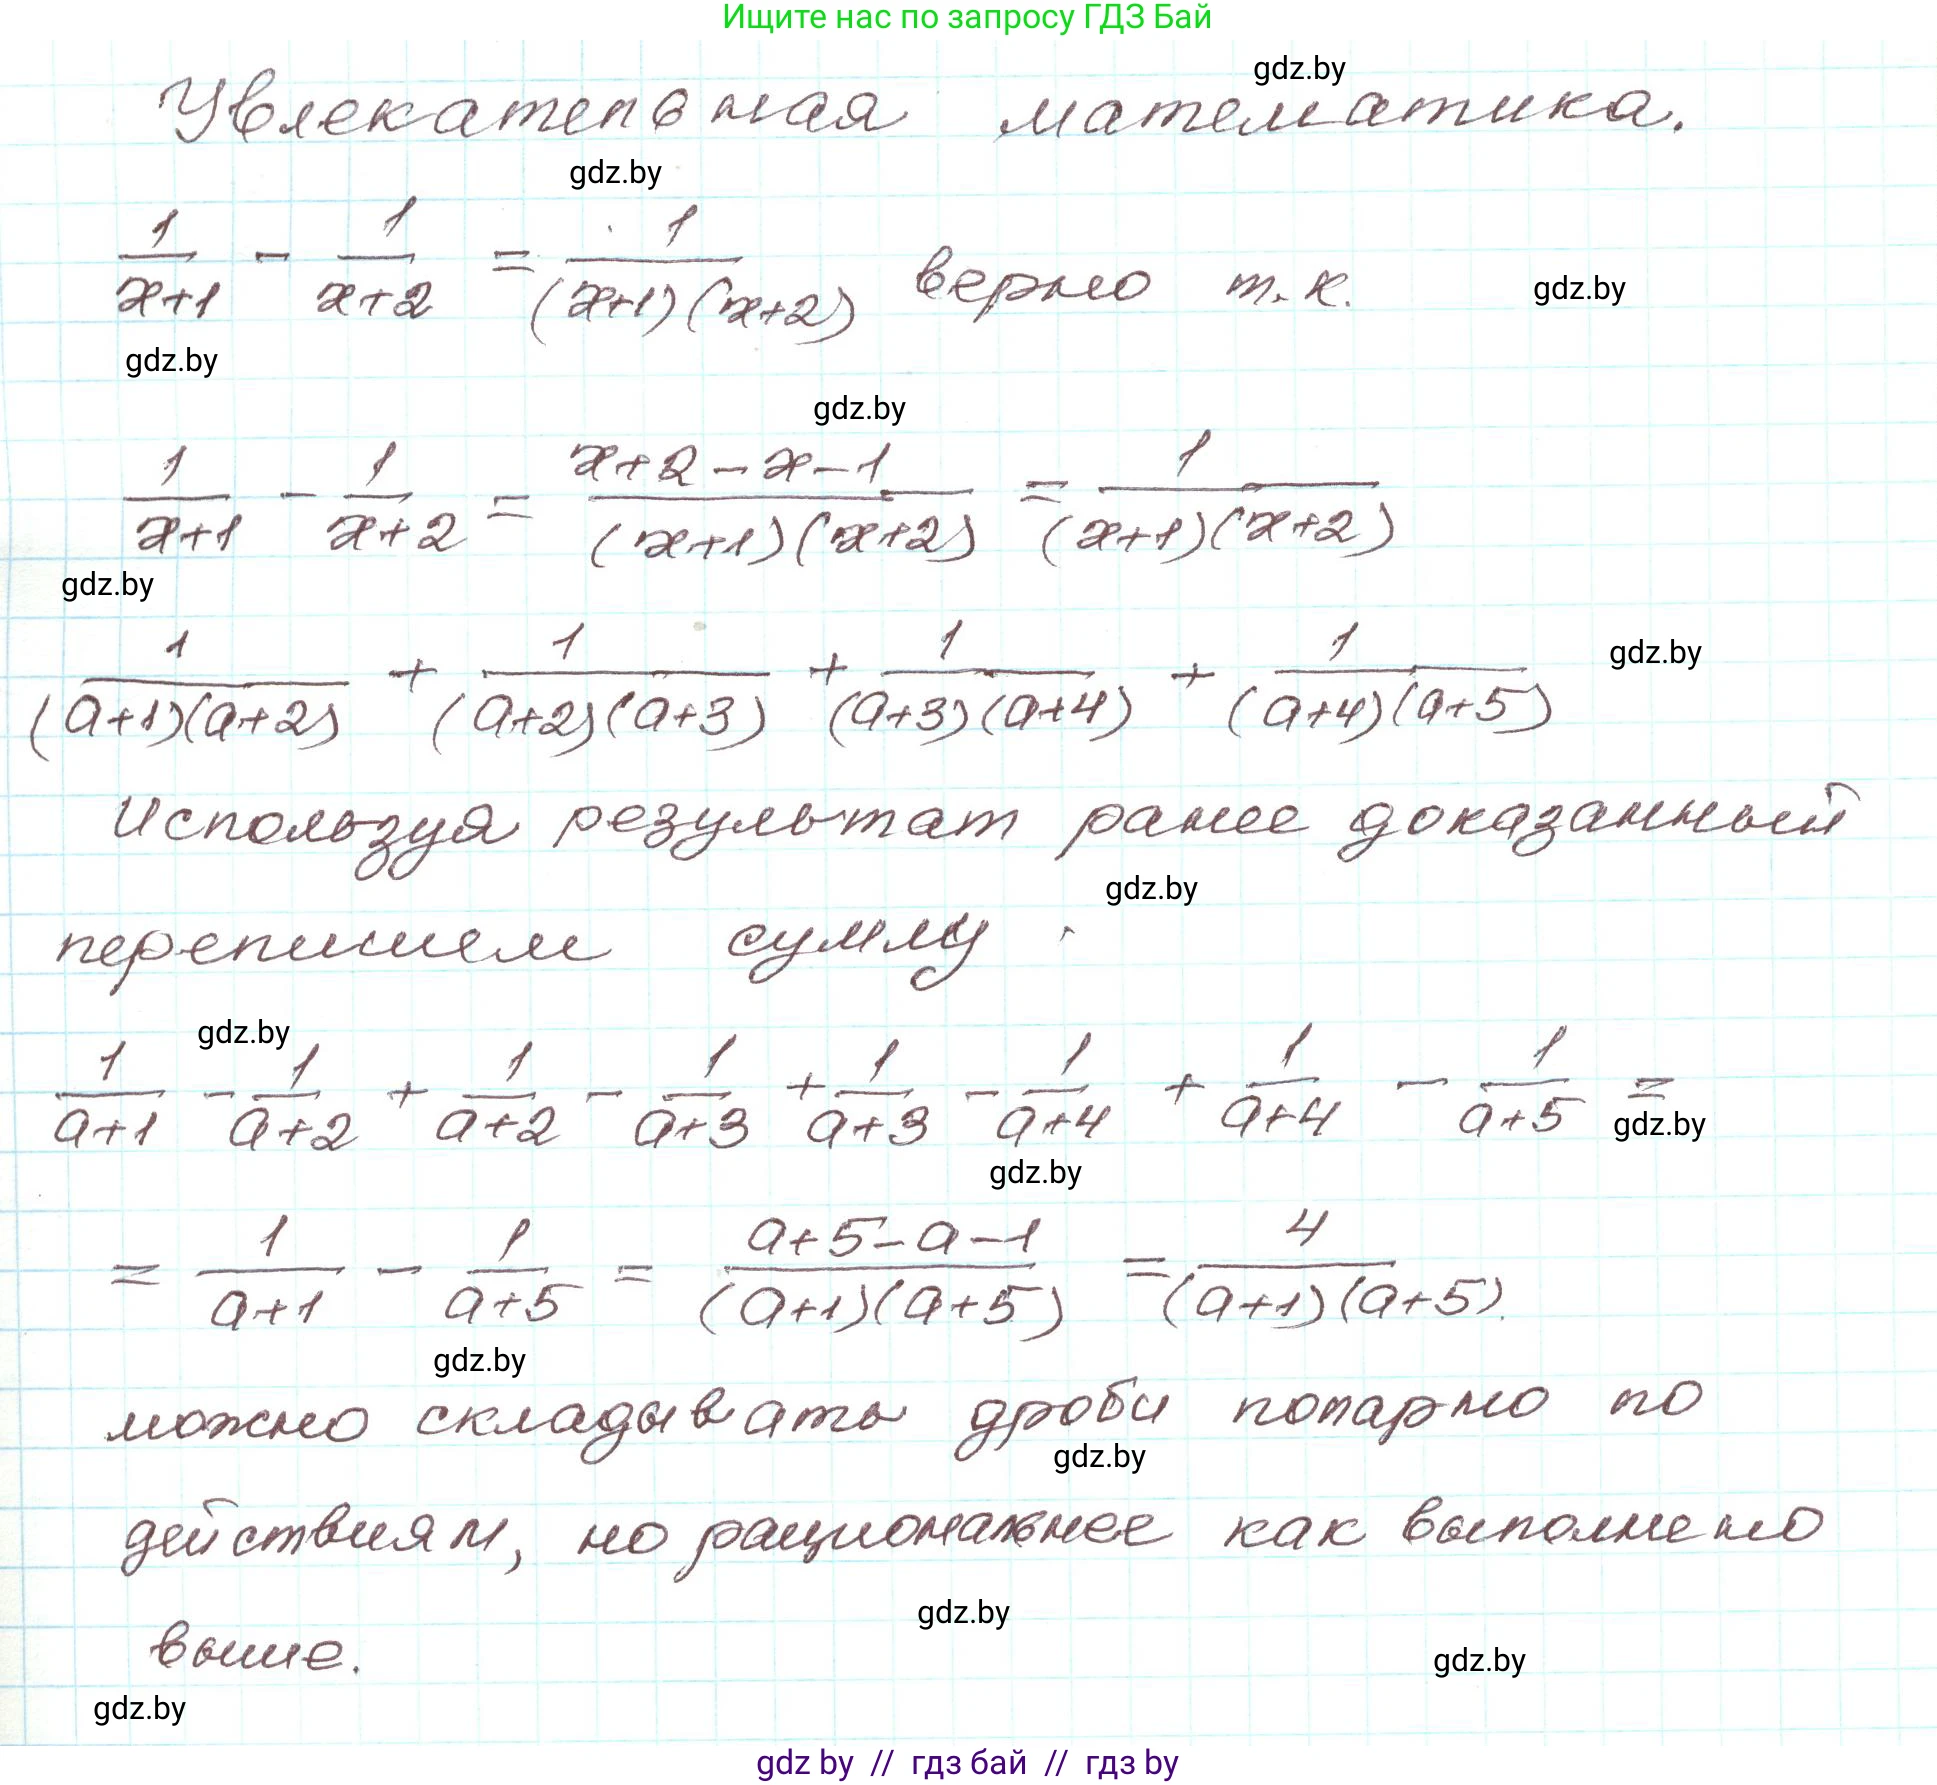 Ищите нас по запросу ГДЗ Бай
gdz.by
Увлекательная математика.
gdz.by
1/(x+1) - 1/(x+2) = 1/((x+1)(x+2)) верно т.к.
gdz.by
gdz.by
gdz.by
1/(x+1) - 1/(x+2) = (x+2-x-1)/((x+1)(x+2)) = 1/((x+1)(x+2))
gdz.by
1/((a+1)(a+2)) + 1/((a+2)(a+3)) + 1/((a+3)(a+4)) + 1/((a+4)(a+5))
gdz.by
Используя результат ранее доказанный
gdz.by
перепишем сумму
gdz.by
1/(a+1) - 1/(a+2) + 1/(a+2) - 1/(a+3) + 1/(a+3) - 1/(a+4) + 1/(a+4) - 1/(a+5) =
gdz.by
gdz.by
= 1/(a+1) - 1/(a+5) = (a+5-a-1)/((a+1)(a+5)) = 4/((a+1)(a+5)).
gdz.by
можно складывать дроби попарно по
gdz.by
действиям, но рациональнее как выполнено
gdz.by
выше.
gdz.by
gdz.by
gdz by // гдз бай // гдз by